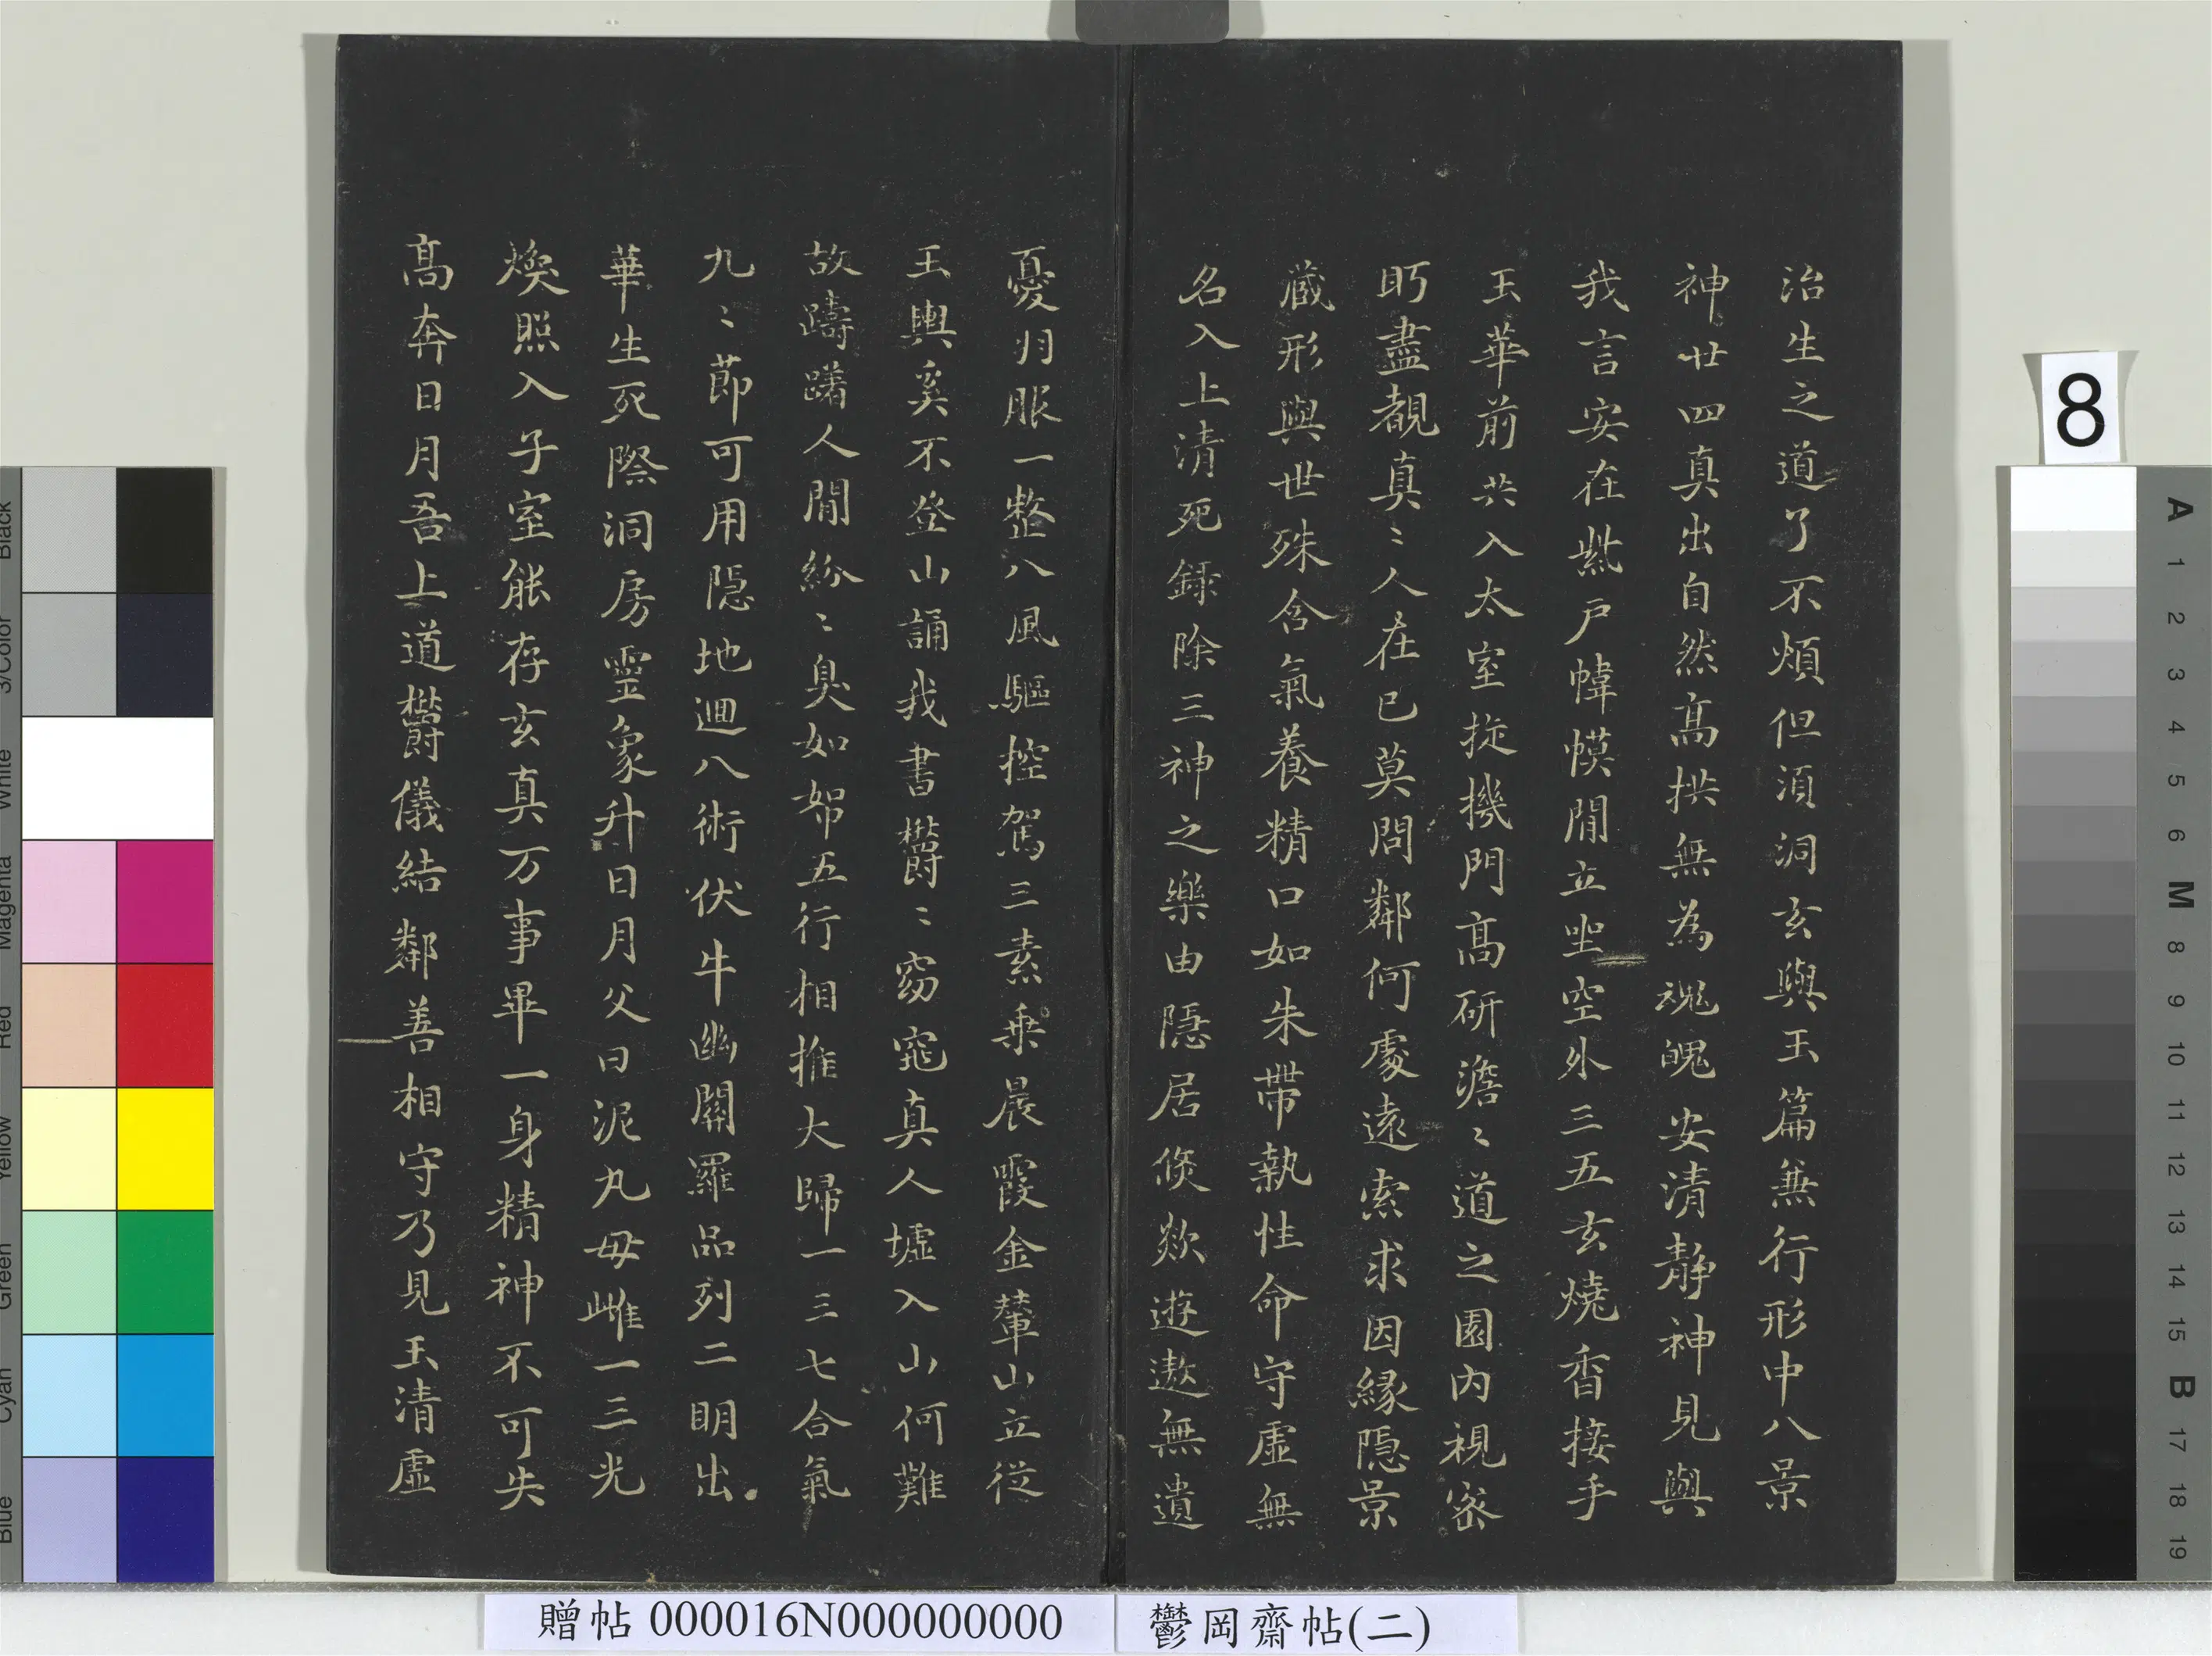 治生之道了不煩但湏洞玄與玉篇兼行形中八景
神廿四真出自然髙拱無為魂魄安清靜神見與
我言安在紫戶幃幙閒立坐空外三五玄燒香接手
玉華前共入太室璇機門髙研澹〻道之園內視密
眄盡覩真〻人在已莫問鄰何處遠索求因緣隠景
藏形與世殊含氣養精口如朱帶執性命守虛無
名入上清死錄除三神之樂由隠居倏欻遊遨無遺
憂羽服一整八風驅控駕三素乗晨霞金輦山立從
玉輿奚不登山誦我書欝〻窈窕真人墟入山何難
故躊躇人閒紛〻臭如帤五行相推大歸一三七合氣
九〻莭可用隠地迴八術伏牛幽闕羅品列二明出
華生死際洞房靈象升日月父曰泥丸母雌一三光
煥照入子室能存玄真万事畢一身精神不可失
髙奔日月吾上道欝儀結鄰善相守乃見玉清虛
贈帖 000016N000000000
鬱岡齋帖(二)
8
A 1 2 3 4 5 6 M 8 9 10 11 12 13 14 15 B 17 18 19
Black
3/Color
White
Magenta
Red
Yellow
Green
Cyan
Blue